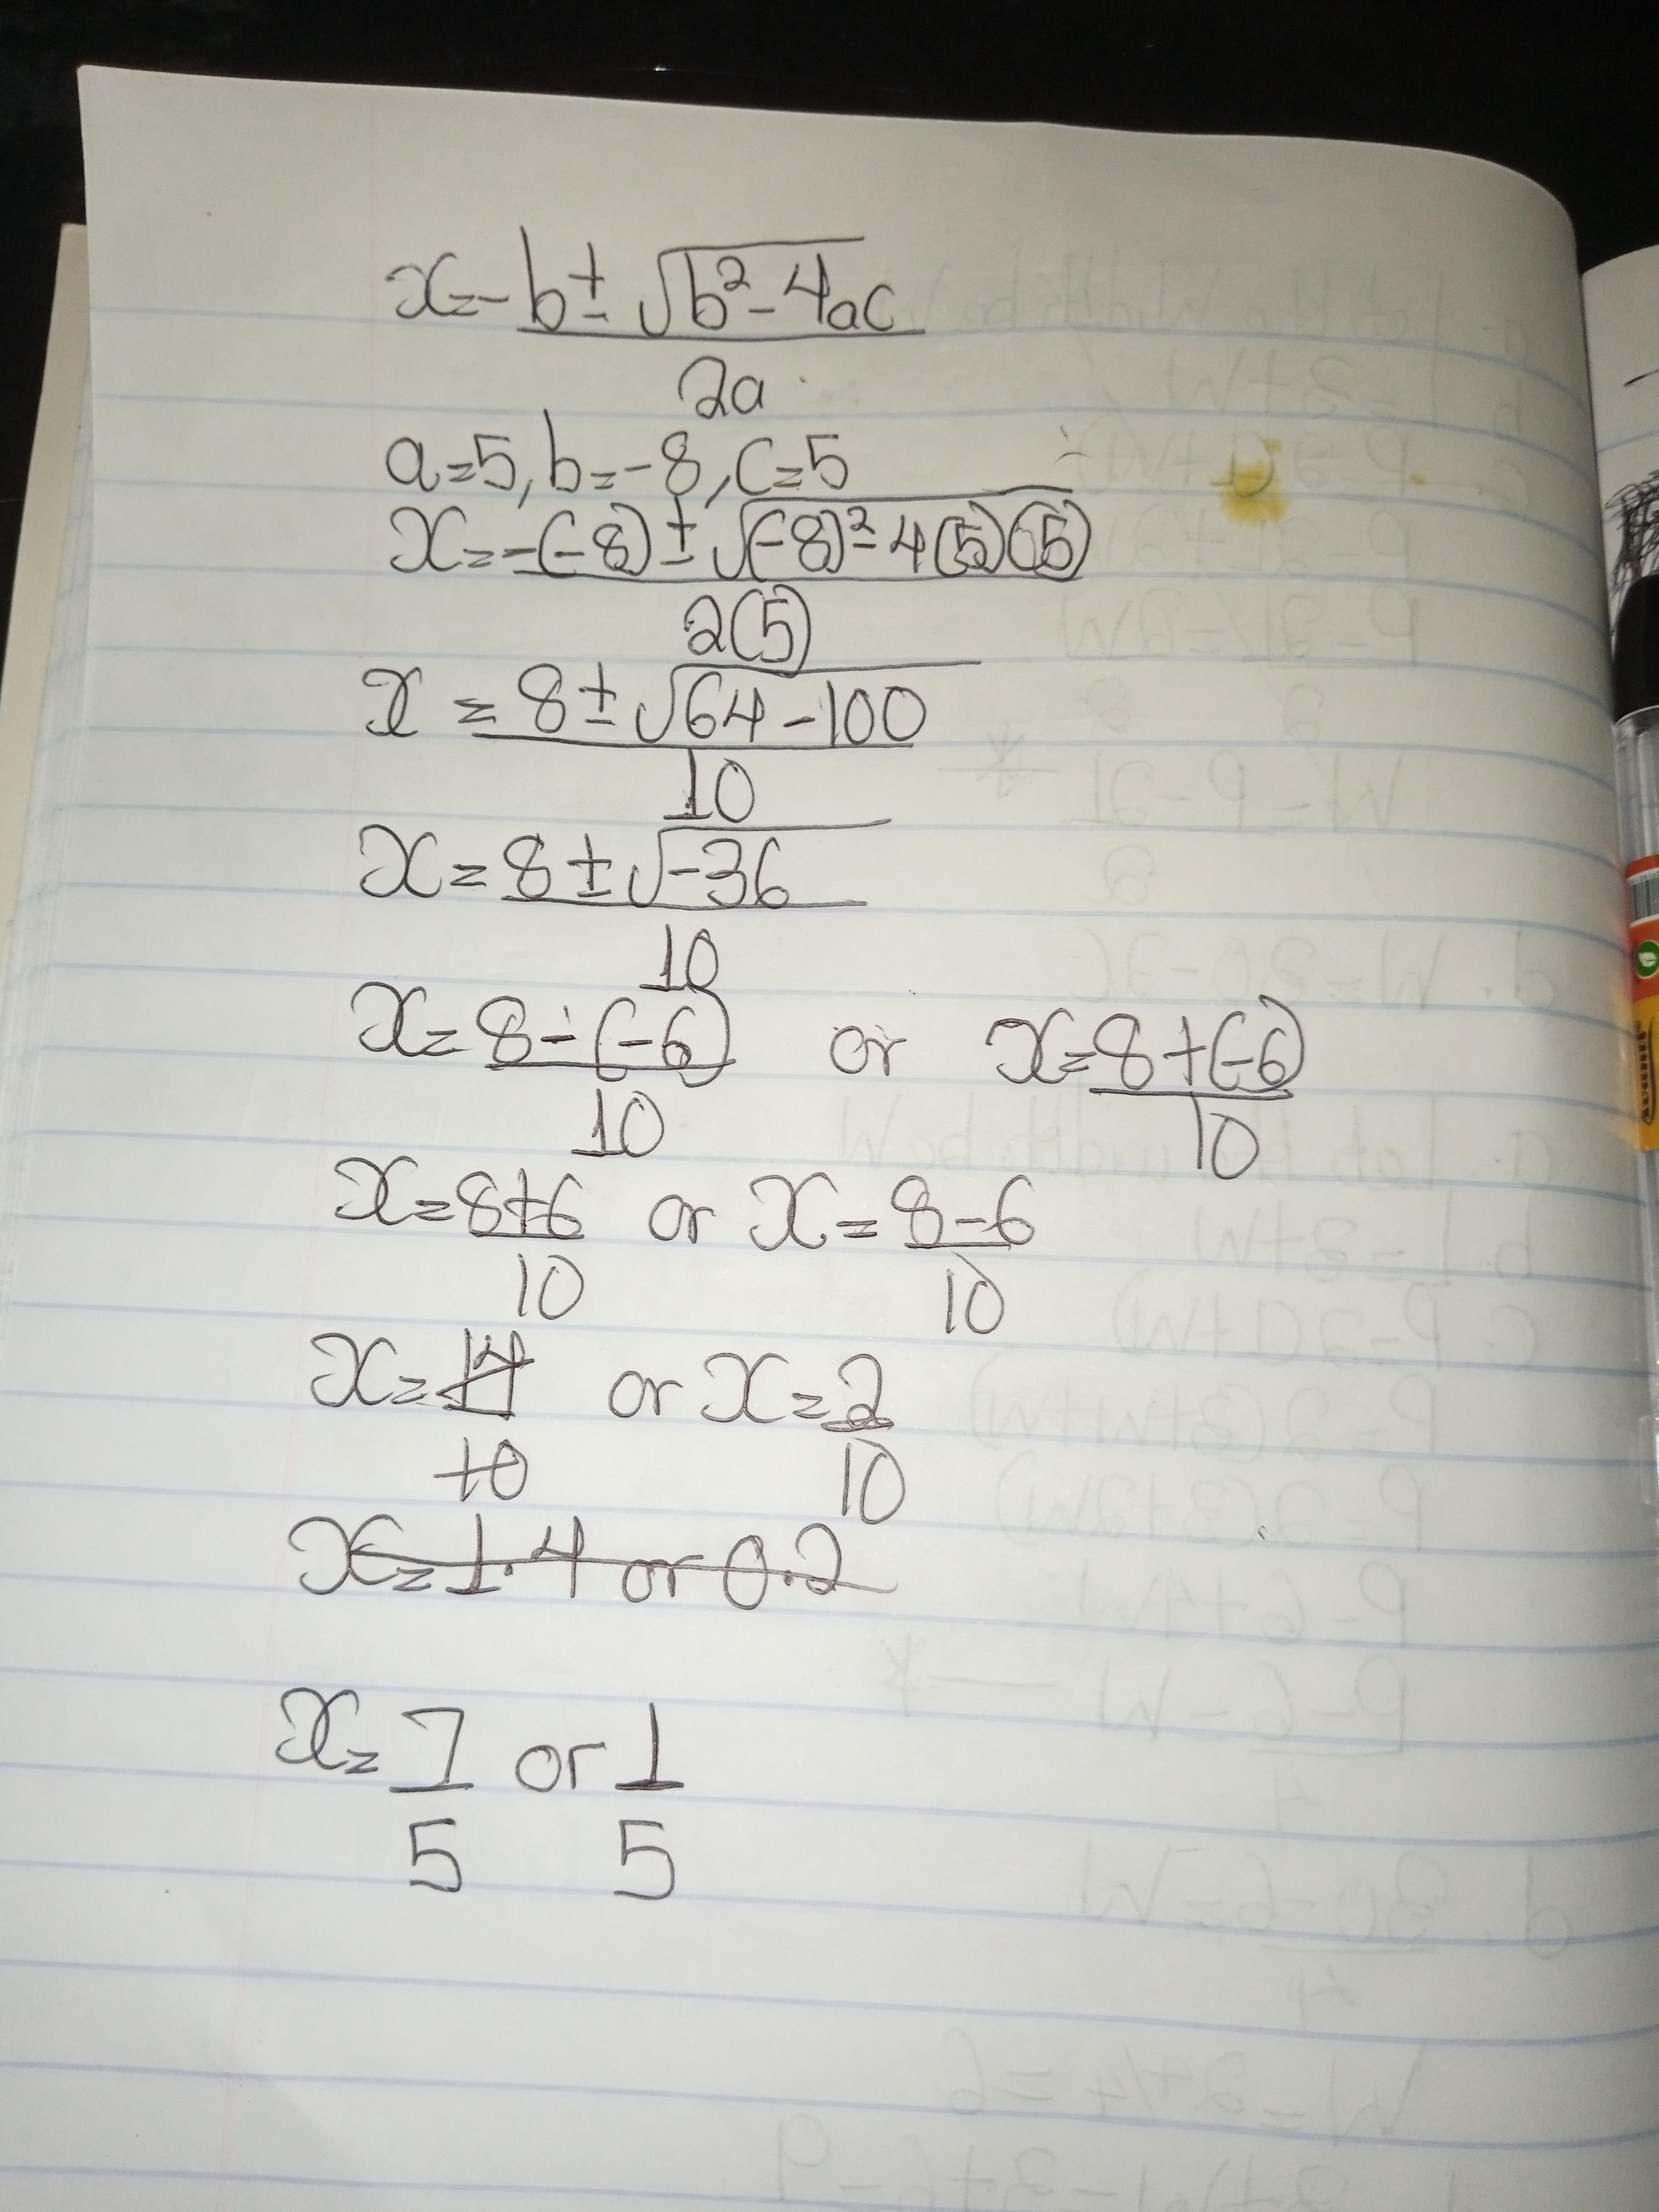 x = -b ± √b² - 4ac
2a
a = 5, b = -8, c = 5
x = -(-8) ± √(-8)² - 4(5)(5)
2(5)
x = 8 ± √64 - 100
10
x = 8 ± √-36
10
x = 8 - (-6) or x = 8 + (-6)
10 10
x = 8+6 or x = 8-6
10 10
x = 14 or x = 2
10 10
x = 1.4 or 0.2
x = 7 or 1
5 5